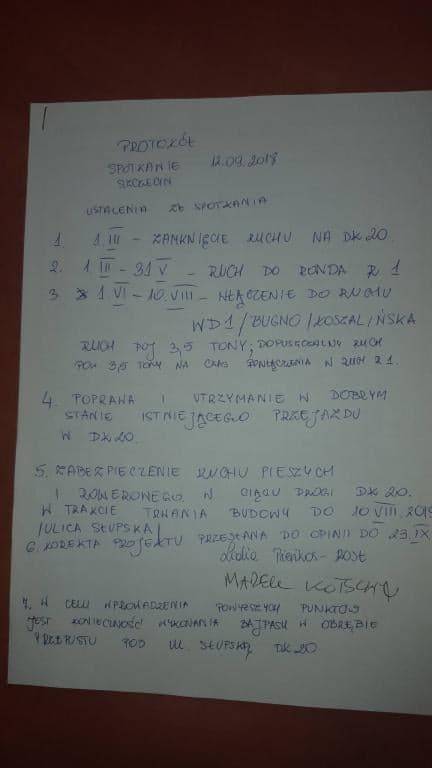 PROTOKÓŁ
SPOTKANIE 12.09.2018
SZCZECIN
USTALENIA ZE SPOTKANIA
1. 1.III – ZAMKNIĘCIE RUCHU NA DK20.
2. 1 III – 31 V – RUCH DO RONDA R 1
3. 1.VI – 10.VIII – WŁĄCZENIE DO RUCHU
WD1/BUGNO/KOSZALIŃSKA
RUCH POJ 3,5 TONY; DOPUSZCZALNY RUCH
POW 3,5 TONY NA CZAS W RUCH R1.
4. POPRAWA I UTRZYMANIE W DOBRYM
STANIE ISTNIEJĄCEGO PRZEJAZDU
W DK20.
5. ZABEZPIECZENIE RUCHU PIESZYCH
I ROWEROWEGO W CIĄGU DROGI DK20.
W TRAKCIE TRWANIA BUDOWY DO 10 VIII.2019
/ULICA SŁUPSKA/
6. KOREKTA PROJEKTU PRZESŁANA DO OPINII DO 23.IX
Lidia
MAREK
7. W CELU WPROWADZENIA POWYŻSZYCH PUNKTÓW
JEST KONIECZNOŚĆ WYKONANIA BAJPASU W OBRĘBIE
PRZEPUSTU POD UL. SŁUPSKĄ DK20.